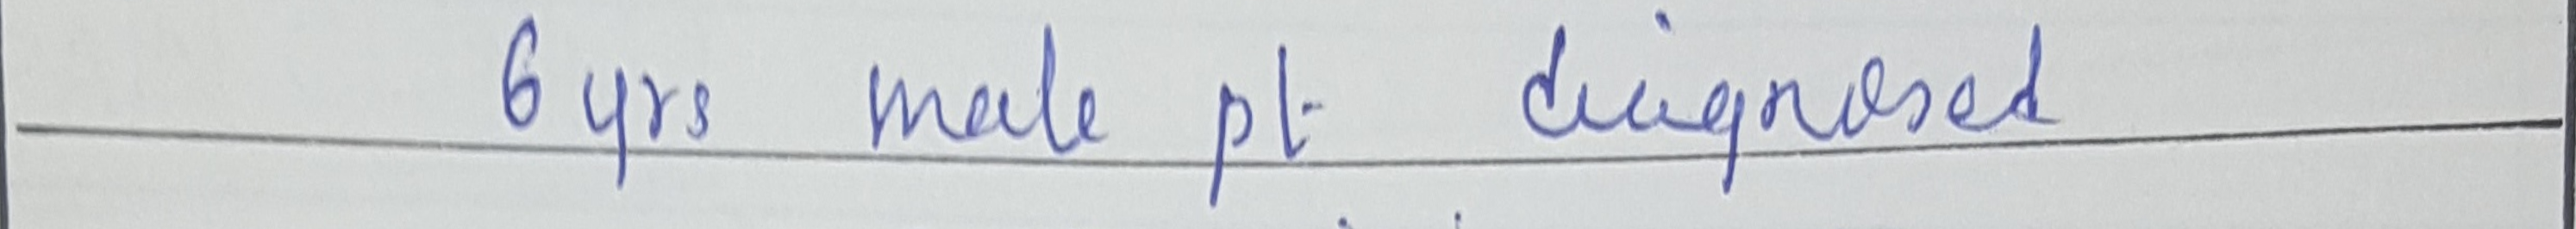 6 yrs male pt diagnosed